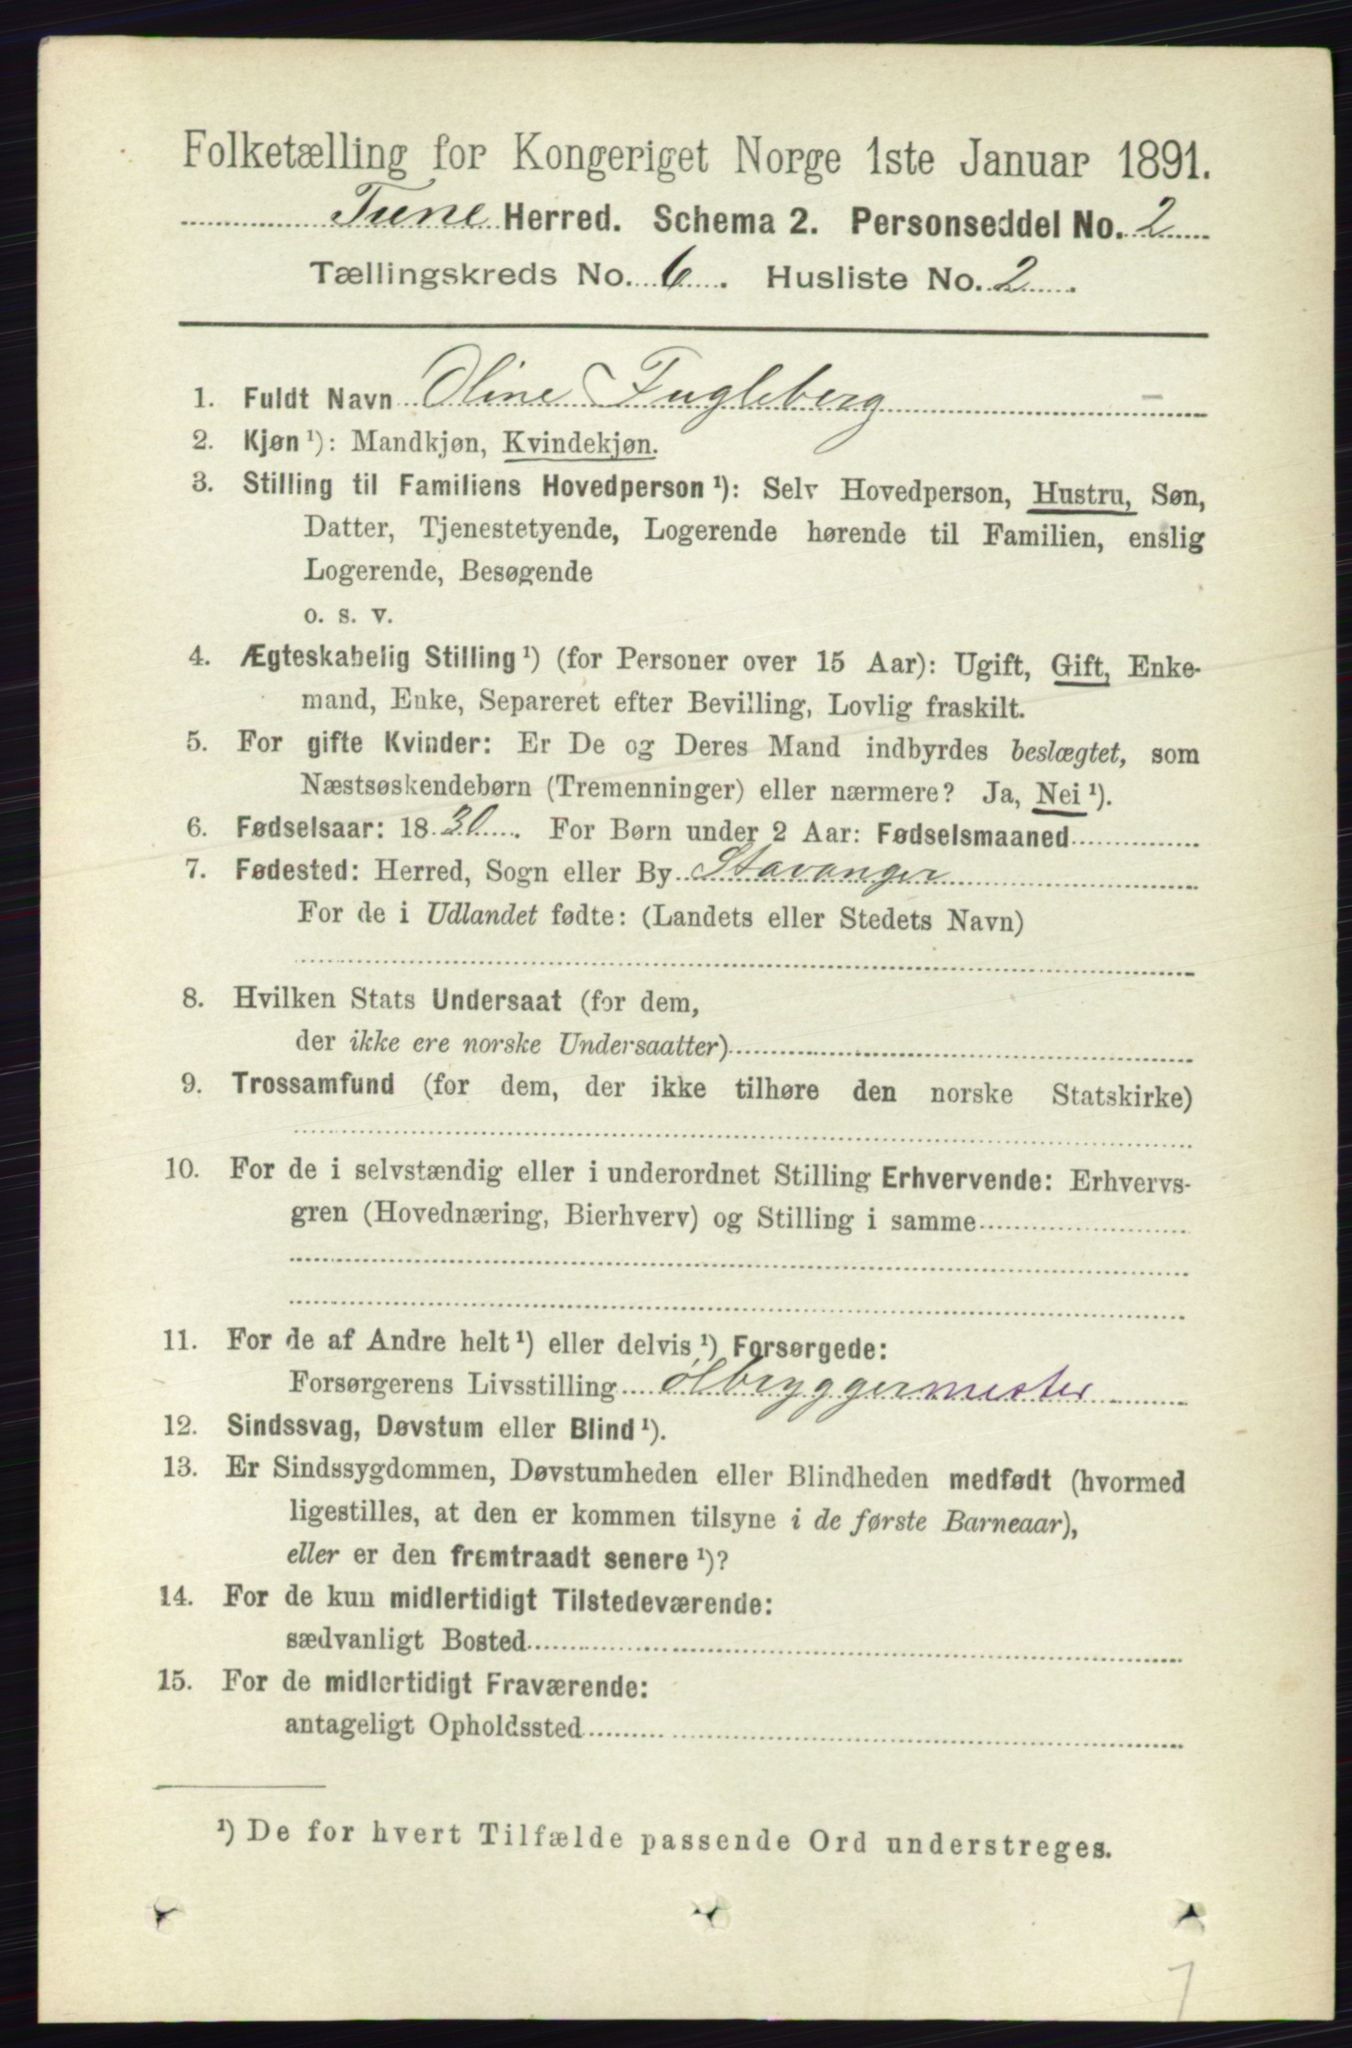 Folketælling for Kongeriget Norge 1ste Januar 1891.
Tune Herred. Schema 2. Personseddel No. 2
Tællingskreds No. 6. Husliste No. 2.
1. Fuldt Navn Oline Fugleberg
2. Kjøn¹): Mandkjøn, Kvindekjøn.
3. Stilling til Familiens Hovedperson¹): Selv Hovedperson, Hustru, Søn,
Datter, Tjenestetyende, Logerende hørende til Familien, enslig
Logerende, Besøgende
o. s. v.
4. Ægteskabelig Stilling¹) (for Personer over 15 Aar): Ugift, Gift, Enke-
mand, Enke, Separeret efter Bevilling, Lovlig fraskilt.
5. For gifte Kvinder: Er De og Deres Mand indbyrdes beslægtet, som
Næstsøskendebørn (Tremenninger) eller nærmere? Ja, Nei¹).
6. Fødselsaar: 1830. For Børn under 2 Aar: Fødselsmaaned
7. Fødested: Herred, Sogn eller By Stavanger
For de i Udlandet fødte: (Landets eller Stedets Navn)
8. Hvilken Stats Undersaat (for dem,
der ikke ere norske Undersaatter)
9. Trossamfund (for dem, der ikke tilhøre den norske Statskirke)
10. For de i selvstændig eller i underordnet Stilling Erhvervende: Erhvervs-
gren (Hovednæring, Bierhverv) og Stilling i samme
11. For de af Andre helt¹) eller delvis¹) Forsørgede:
Forsørgerens Livsstilling ølbryggermester
12. Sindssvag, Døvstum eller Blind¹).
13. Er Sindssygdommen, Døvstumheden eller Blindheden medfødt (hvormed
ligestilles, at den er kommen tilsyne i de første Barneaar),
eller er den fremtraadt senere¹)?
14. For de kun midlertidigt Tilstedeværende:
sædvanligt Bosted
15. For de midlertidigt Fraværende:
antageligt Opholdssted
¹) De for hvert Tilfælde passende Ord understreges.